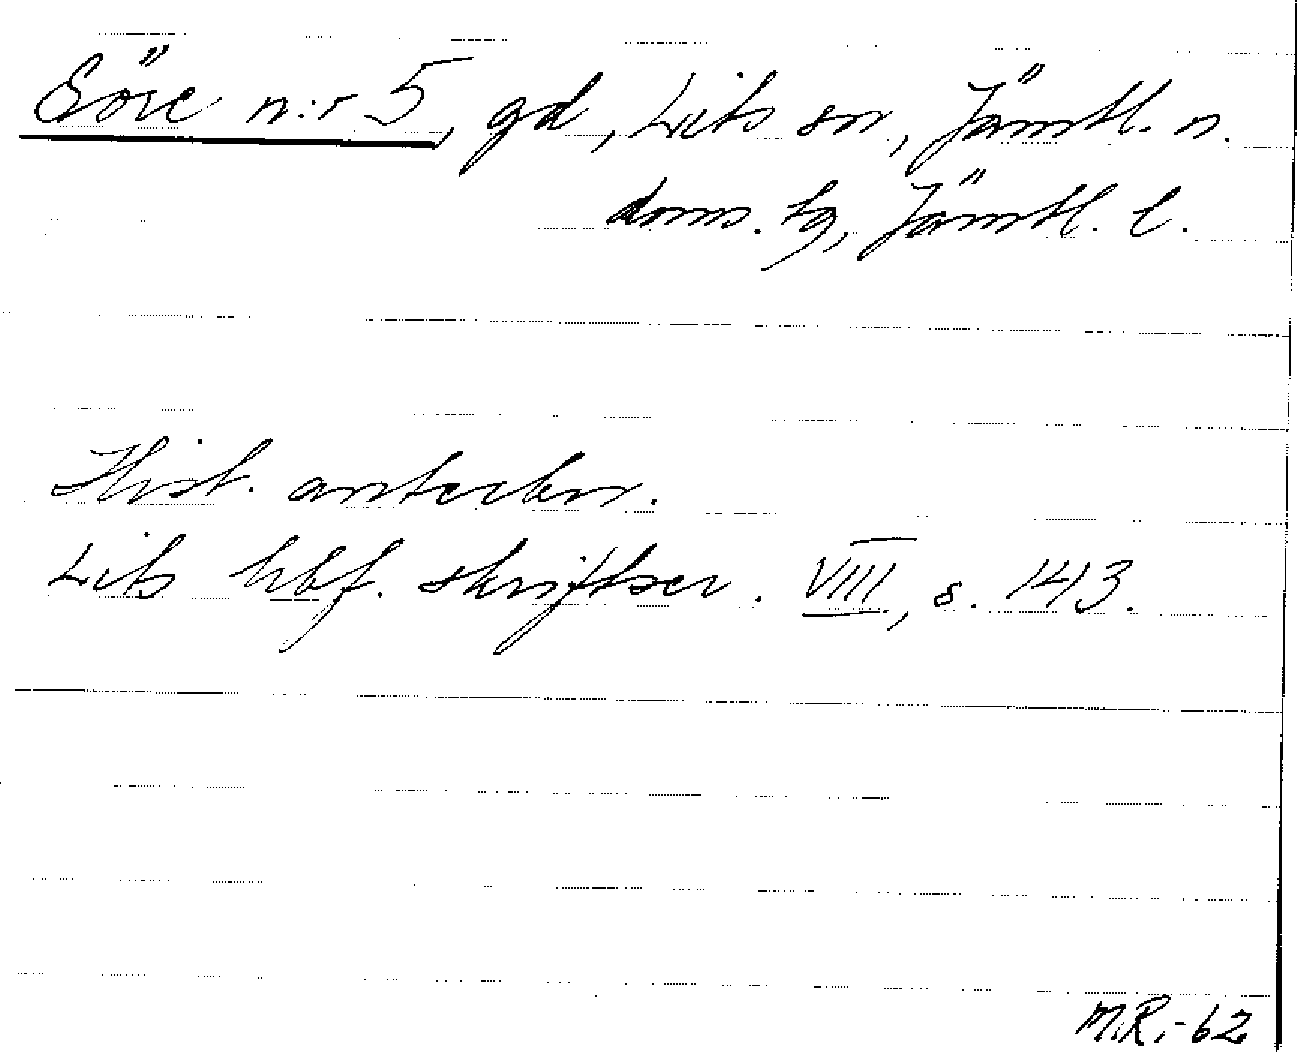 Söre n:r 5, gd, Lits sn, Jämtl. n.
doms. hg, Jämtl. l.
Hist. anteckn.
Lits hbf. skriftser. VIII, s. 143.
M.R.-62